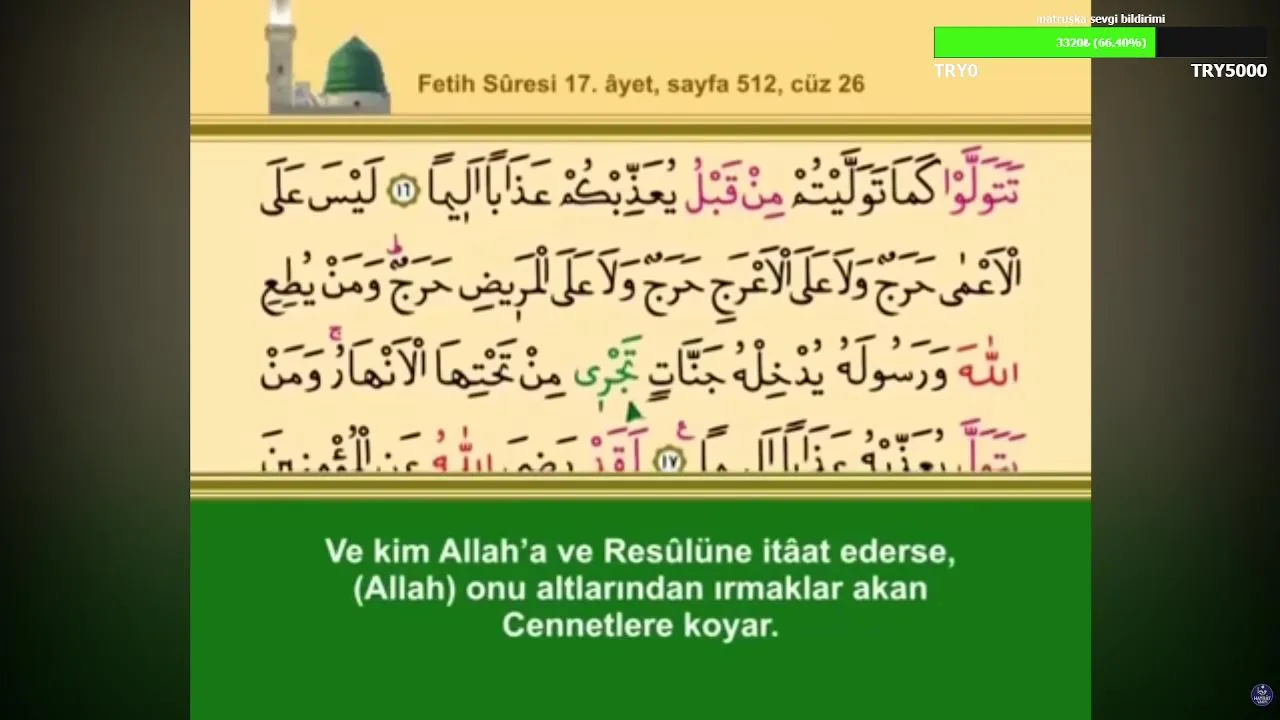 matruşka sevgi bildirimi
3320₺ (66.40%)
TRY0
TRY5000
Fetih Sûresi 17. âyet, sayfa 512, cüz 26
تَتَوَلَّوْا كَمَا تَوَلَّيْتُمْ مِنْ قَبْلُ يُعَذِّبْكُمْ عَذَابًا اَلِيمًا ١٦ لَيْسَ عَلَى
الْاَعْمٰى حَرَجٌ وَلَا عَلَى الْاَعْرَجِ حَرَجٌ وَلَا عَلَى الْمَرِيضِ حَرَجٌۜ وَمَنْ يُطِعِ
اللّٰهَ وَرَسُولَهُ يُدْخِلْهُ جَنَّاتٍ تَجْرِى مِنْ تَحْتِهَا الْاَنْهَارُۚ وَمَنْ
يَتَوَلَّ يُعَذِّبْهُ عَذَابًا اَلِيمًا ١٧ لَقَدْ رَضِىَ اللّٰهُ عَنِ الْمُؤْمِنِينَ
Ve kim Allah’a ve Resûlüne itâat ederse,
(Allah) onu altlarından ırmaklar akan
Cennetlere koyar.